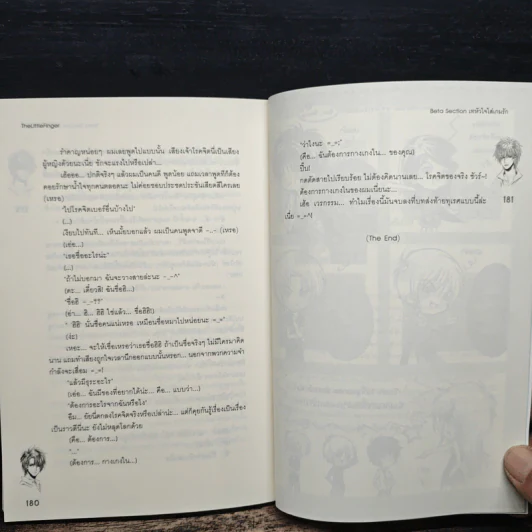 TheLittleFinger
รำคาญหน่อยๆ ผมเลยพูดไปแบบนั้น เสียงเจ้าโรคจิตนี่เป็นเสียง
ผู้หญิงด้วยนะเนี่ย ชักจะแรงไปหรือเปล่า...
เฮ้ออ... ปกติจริงๆ แล้วผมเป็นคนดี พูดน้อย แถมเวลาพูดก็ต้อง
คอยรักษาน้ำใจทุกคนตลอดนะ ไม่ค่อยชอบประชดประชันเสียดสีใครเลย
(เหรอ)
"ไปโรคจิตเบอร์อื่นบ้างไป"
(...)
เงียบไปทันที... เห็นมั้ยบอกแล้ว ผมเป็นคนพูดจาดี -..- (เหรอ)
(เอ่อ...)
"เธอชื่ออะไรน่ะ"
(...)
"ถ้าไม่บอกมา ฉันจะวางสายล่ะนะ -_-^"
(ดะ... เดี๋ยวสิ! ฉันชื่อฮิ...)
"ชื่อฮิ =_=??"
(อ่า... ฮิ... ฮิฮิ ใช่แล้ว... ชื่อฮิฮิ!)
"'ฮิฮิ' นั่นชื่อคนแน่เหรอ เหมือนชื่อหมาไปหน่อยนะ =_="
(ง่ะ)
เหอะ... จะให้เชื่อเหรอว่าเธอชื่อฮิฮิ ถ้าเป็นชื่อจริงๆ ไม่มีใครมาคิด
นาน แถมทำเสียงถูกใจเวลานึกออกแบบนั้นหรอก... นอกจากพวกความจำ
กำลังจะเสื่อม =_=!
"แล้วมีธุระอะไร"
(เอ่อ... ฉันมีของที่อยากได้น่ะ... คือ... แบบว่า...)
"ต้องการอะไรจากฉันหรือไง"
อืม... ยัยนี่ตกลงโรคจิตจริงหรือเปล่าน่ะ... แต่ก็คุยกันรู้เรื่องเป็นเรื่อง
เป็นราวดีนี่นะ ยังไม่หลุดโลกด้วย
(คือ... ต้องการ...)
"..."
(ต้องการ... กางเกงใน...)
180
Beta Section บทหัวใจใส่เกมรัก
"ว่าไงนะ =_="
(คือ... ฉันต้องการกางเกงใน... ของคุณ)
ปี๊บ!
กดตัดสายไปเรียบร้อย ไม่ต้องคิดนานเลย... โรคจิตของจริง ชัวร์~!
ต้องการกางเกงในของผมเนี่ยนะ...
เฮ้อ เวรกรรม... ทำไมเรื่องนี้มันจบลงที่บทส่งท้ายทุเรศแบบนี้ล่ะ
เนี่ย =_=^!
181
(The End)